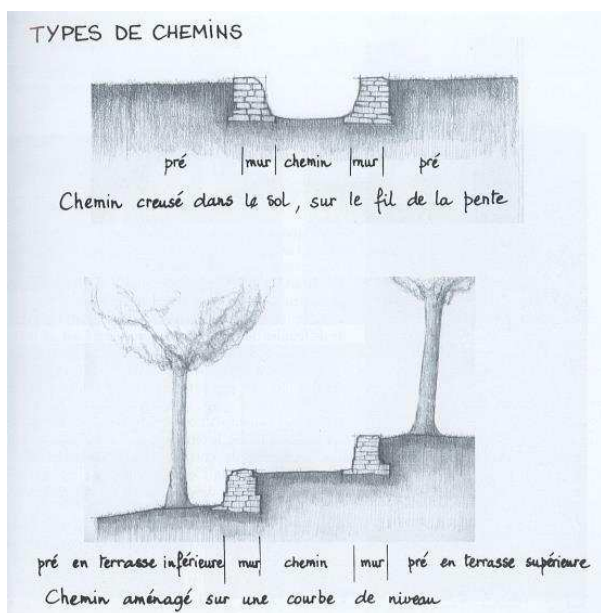 TYPES DE CHEMINS
pré | mur | chemin | mur | pré
Chemin creusé dans le sol, sur le fil de la pente
pré en terrasse inférieure | mur | chemin | mur | pré en terrasse supérieure
Chemin aménagé sur une courbe de niveau